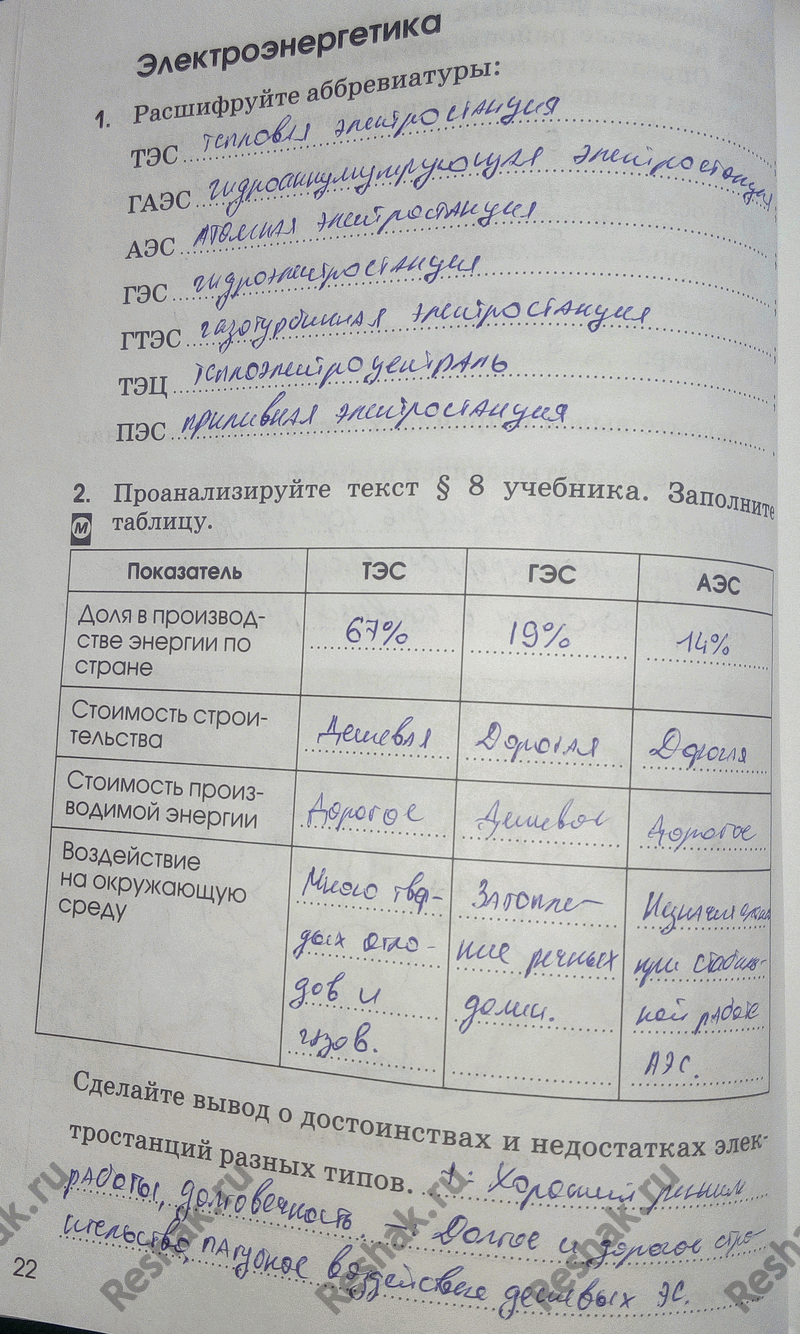 Электроэнергетика
1. Расшифруйте аббревиатуры:
ТЭС тепловая электростанция
ГАЭС гидроаккумулирующая электростанция
АЭС Атомная электростанция
ГЭС гидроэлектростанция
ГТЭС газотурбинная электростанция
ТЭЦ теплоэлектроцентраль
ПЭС приливная электростанция
2. Проанализируйте текст § 8 учебника. Заполните
М таблицу.
Показатель ТЭС ГЭС АЭС
Доля в производ-
стве энергии по
стране
67% 19% 14%
Стоимость строи-
тельства
Дешевая Дорогая Дорогая
Стоимость произ-
водимой энергии
Дорогое Дешевое Дорогое
Воздействие
на окружающую
среду
Много твер-
дых отхо-
дов и
газов.
Затопле-
ние речных
долин.
при стабиль-
ной работе
АЭС.
Сделайте вывод о достоинствах и недостатках элек-
тростанций разных типов. +: Хороший режим
работы, долговечность. -: Долгое и дорогое стро-
ительство, пагубное воздействие дешевых ЭС.
22
Reshak.ru
Reshak.ru
Reshak.ru